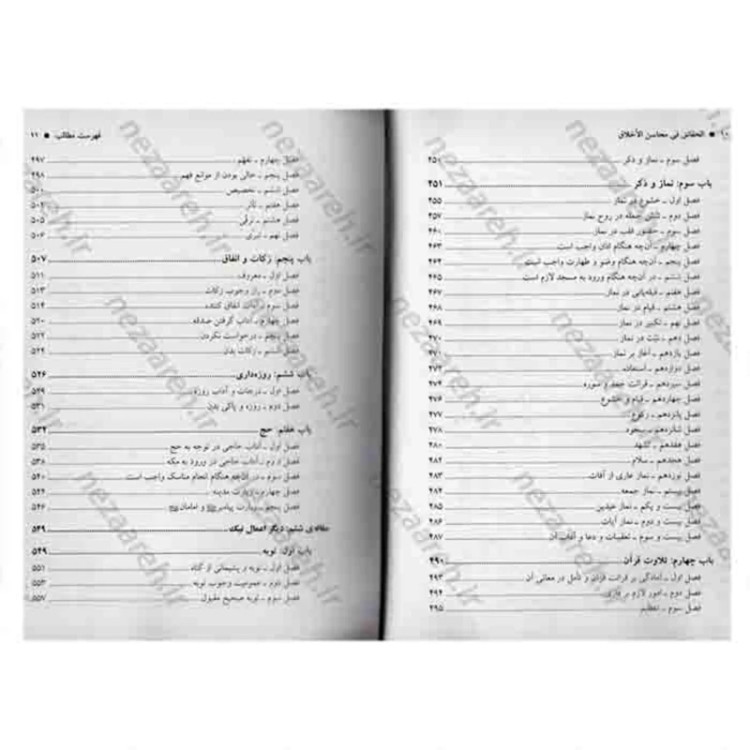 ۱۰ ● الحقائق فی محاسن الأخلاق
فصل سوم ـ نماز و ذکر ۴۵۱
باب سوم: نماز و ذکر ۴۵۱
فصل اول ـ خشوع در نماز ۴۵۵
فصل دوم ـ شش جمله در روح نماز ۴۵۷
فصل سوم ـ حضور قلب در نماز ۴۶۰
فصل چهارم ـ آن‌چه هنگام اذان واجب است ۴۶۳
فصل پنجم ـ آن‌چه هنگام وضو و طهارت واجب است ۴۶۴
فصل ششم ـ در آن‌چه هنگام ورود به مسجد لازم است ۴۶۵
فصل هفتم ـ قبله‌یابی در نماز ۴۶۷
فصل هشتم ـ قیام در نماز ۴۶۸
فصل نهم ـ تکبیر در نماز ۴۶۹
فصل دهم ـ نیّت در نماز ۴۷۰
فصل یازدهم ـ آغاز بر نماز ۴۷۱
فصل دوازدهم ـ استعاذه ۴۷۲
فصل سیزدهم ـ قرائت حمد و سوره ۴۷۴
فصل چهاردهم ـ قیام و خشوع ۴۷۶
فصل پانزدهم ـ رکوع ۴۷۷
فصل شانزدهم ـ سجود ۴۷۸
فصل هفدهم ـ تشهد ۴۸۰
فصل هجدهم ـ سلام ۴۸۲
فصل نوزدهم ـ نماز عاری از آفات ۴۸۳
فصل بیستم ـ نماز جمعه ۴۸۴
فصل بیست و یکم ـ نماز عیدین ۴۸۵
فصل بیست و دوم ـ نماز آیات ۴۸۶
فصل بیست و سوم ـ تعقیبات و دعا و آفات آن ۴۸۷
باب چهارم: تلاوت قرآن ۴۹۰
فصل اول ـ آمادگی بر قرائت قرآن و تأمل در معانی آن ۴۹۳
فصل دوم ـ امور لازم بر قاری ۴۹۴
فصل سوم ـ تعظیم ۴۹۵
فهرست مطالب ● ۱۱
فصل چهارم ـ تفهّم ۴۹۷
فصل پنجم ـ خالی بودن از موانع فهم ۴۹۸
فصل ششم ـ تخصیص ۵۰۰
فصل هفتم ـ تأثر ۵۰۴
فصل هشتم ـ ترقّی ۵۰۵
فصل نهم ـ تبرّی ۵۰۶
باب پنجم: زکات و انفاق ۵۰۷
فصل اول ـ معروف ۵۱۱
فصل دوم ـ راز وجوب زکات ۵۱۳
فصل سوم ـ آداب انفاق کننده ۵۱۴
فصل چهارم ـ آداب گرفتن صدقه ۵۲۰
فصل پنجم ـ درخواست نکردن ۵۲۲
فصل ششم ـ زکات بدن ۵۲۴
باب ششم: روزه‌داری ۵۲۶
فصل اول ـ درجات و آداب روزه ۵۲۹
فصل دوم ـ روزه و پاکی بدن ۵۳۱
باب هفتم: حج ۵۳۲
فصل اول ـ آداب حاجی در توجه به حج ۵۳۵
فصل دوم ـ آداب حاجی در ورود به مکه ۵۳۸
فصل سوم ـ در آن‌چه هنگام انجام مناسک واجب است ۵۴۰
فصل چهارم ـ زیارت مدینه ۵۴۶
فصل پنجم ـ زیارت پیامبر و امامان ۵۴۷
مقاله‌ی ششم: دیگر اعمال نیک ۵۴۹
باب اول: توبه ۵۴۹
فصل اول ـ توبه و پشیمانی از گناه ۵۵۱
فصل دوم ـ عمومیت وجوب توبه ۵۵۳
فصل سوم ـ توبه صحیح مقبول ۵۵۷
nezaareh.ir